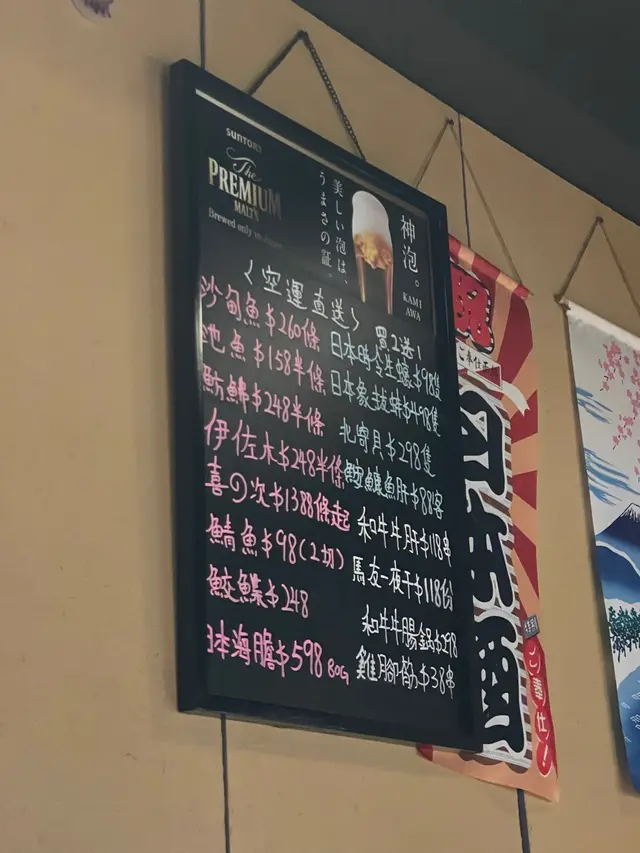 SUNTORY
The
PREMIUM
MALT'S
Brewed only in Japan
美しい泡は、
うまさの証。
神泡。
KAMI
AWA
<空運直送>
沙甸魚$260條
池魚$158半條
魴鮄$248半條
伊佐木$248半條
喜の次$1388條起
鯖魚$98(2切)
鮫鰈$248
日本海膽$598 80G
買2送1
日本時令生蠔$98隻
日本象拔蚌$498隻
北寄貝$298隻
鮟鱇魚肝$88客
和牛牛肝$118串
馬友一夜干$118份
和牛牛腸鍋$298
雞腳筋$38串
ご奉仕
日本酒
ご奉仕!